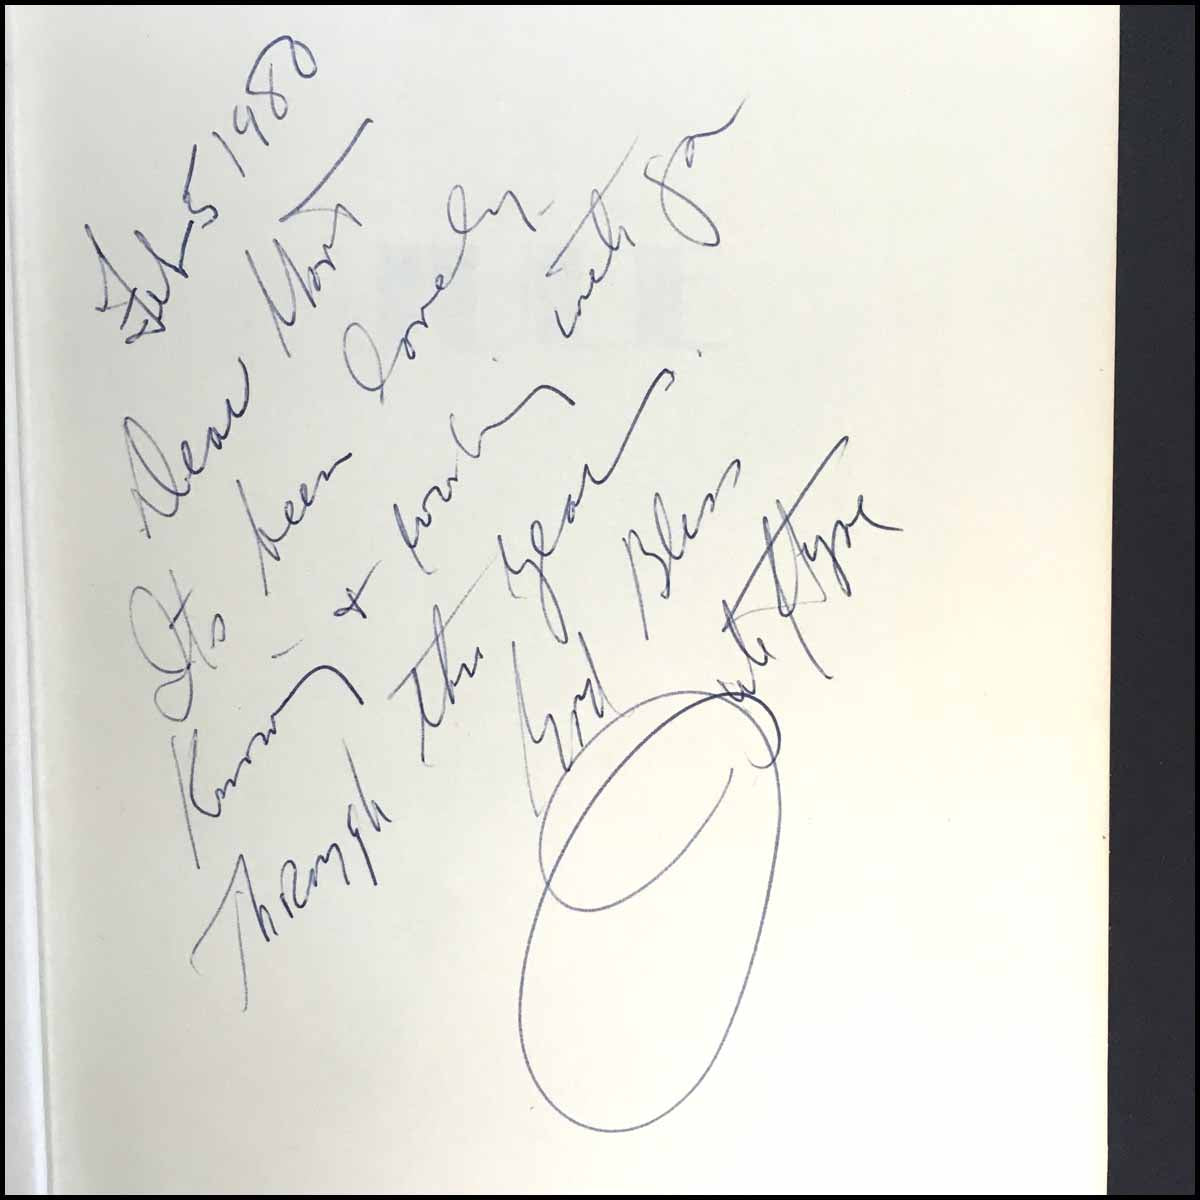 Feb 5 1980
Dear Mort
Its been lovely
Knowing + working with you
Through this year.
God Bless